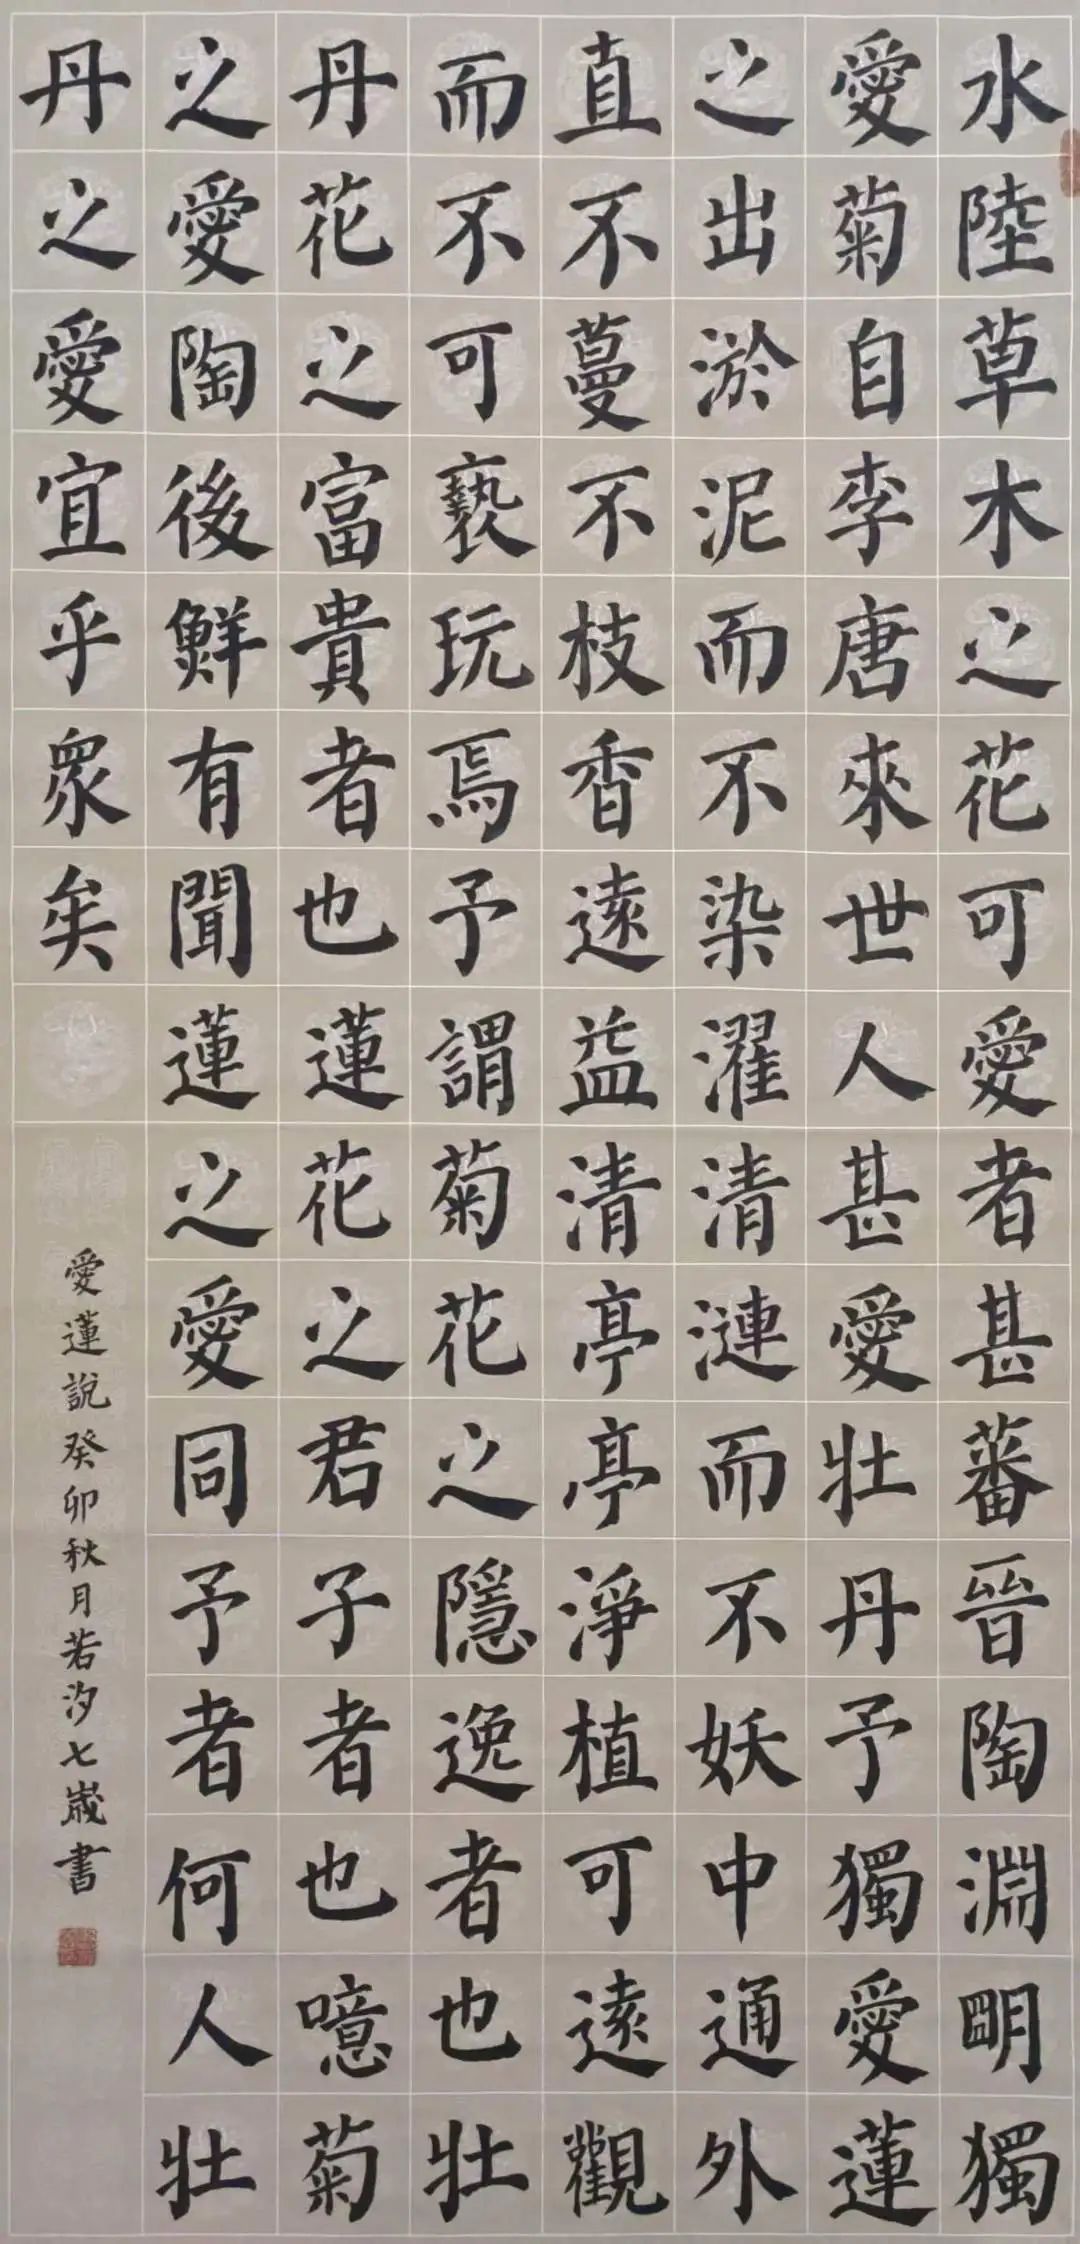 水陸草木之花可愛者甚蕃晉陶淵明獨
愛菊自李唐來世人甚愛牡丹予獨愛蓮
之出淤泥而不染濯清漣而不妖中通外
直不蔓不枝香遠益清亭亭淨植可遠觀
而不可褻玩焉予謂菊花之隱逸者也牡
丹花之富貴者也蓮花之君子者也噫菊
之愛陶後鮮有聞蓮之愛同予者何人牡
丹之愛宜乎眾矣
愛蓮說癸卯秋月若汐七歲書